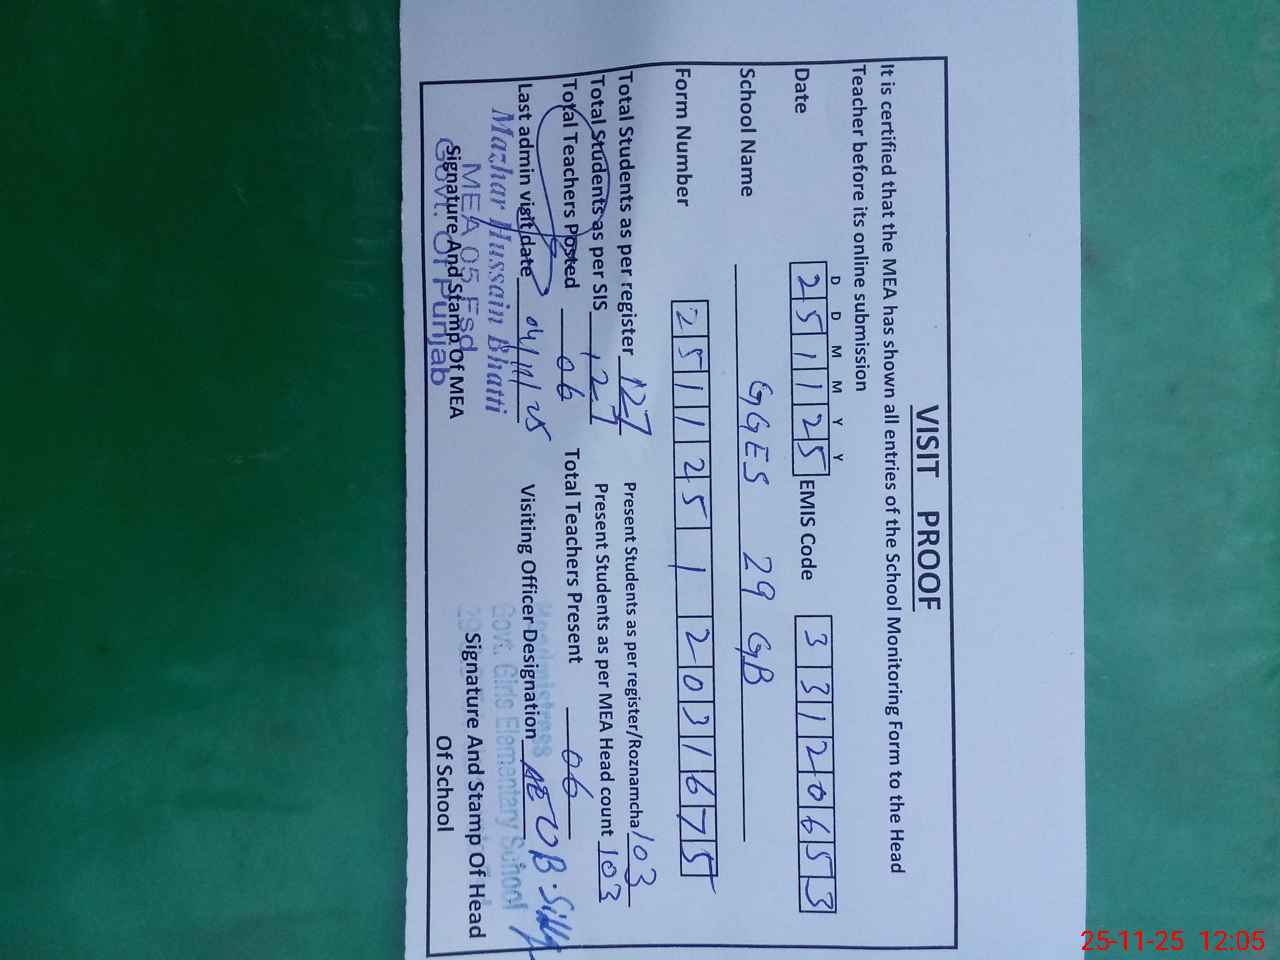 VISIT PROOF
It is certified that the MEA has shown all entries of the School Monitoring Form to the Head
Teacher before its online submission
D D M M Y Y
Date 251125 EMIS Code 33120653
School Name GGES 29 GB
Form Number 251125 1 2031675
Total Students as per register 127 Present Students as per register/Roznamcha 103
Total Students as per SIS 127 Present Students as per MEA Head count 103
Total Teachers Posted 06 Total Teachers Present 06
Last admin visit date 04/11/25 Visiting Officer Designation
Mazhar Hussain Bhatti
MEA 05 Fsd
Govt. Of Punjab
Signature And Stamp Of MEA
Headmistress
Govt. Girls Elementary School
Signature And Stamp Of Head
Of School
25-11-25 12:05